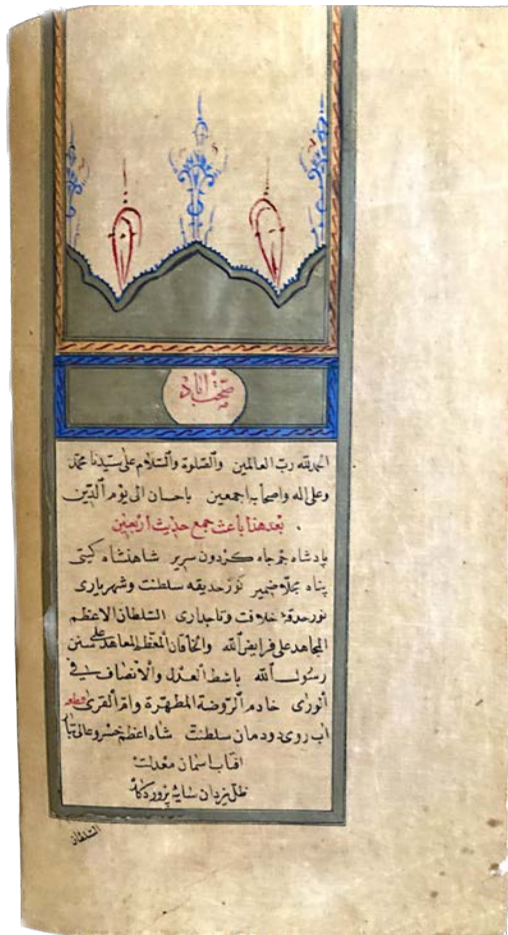 صحت آباد
الحمد لله رب العالمين والصلوة والسلام على سيدنا محمد
وعلى اله واصحابه اجمعين باحسان الى يوم الدين
بعد هذا باعث جمع حديث اربعين
پادشاه جم جاه كردون سرير شاهنشاه كيتى
پناه مجلا ضمير نور حديقه سلطنت وشهريارى
نور حدقهٔ خلافت وتاجدارى السلطان الاعظم
المجاهد على فرايض الله والخاقان المعظم المعاهد على سنن
رسول الله باسط العدل والانصاف فى
خادم الروضة المطهرة وام القرى قطعه
اب روى دودمان سلطنت شاه اعظم خسرو عالى
افتاب اسمان معدلت
ظل يزدان سايهٔ پروردكار
السلطان